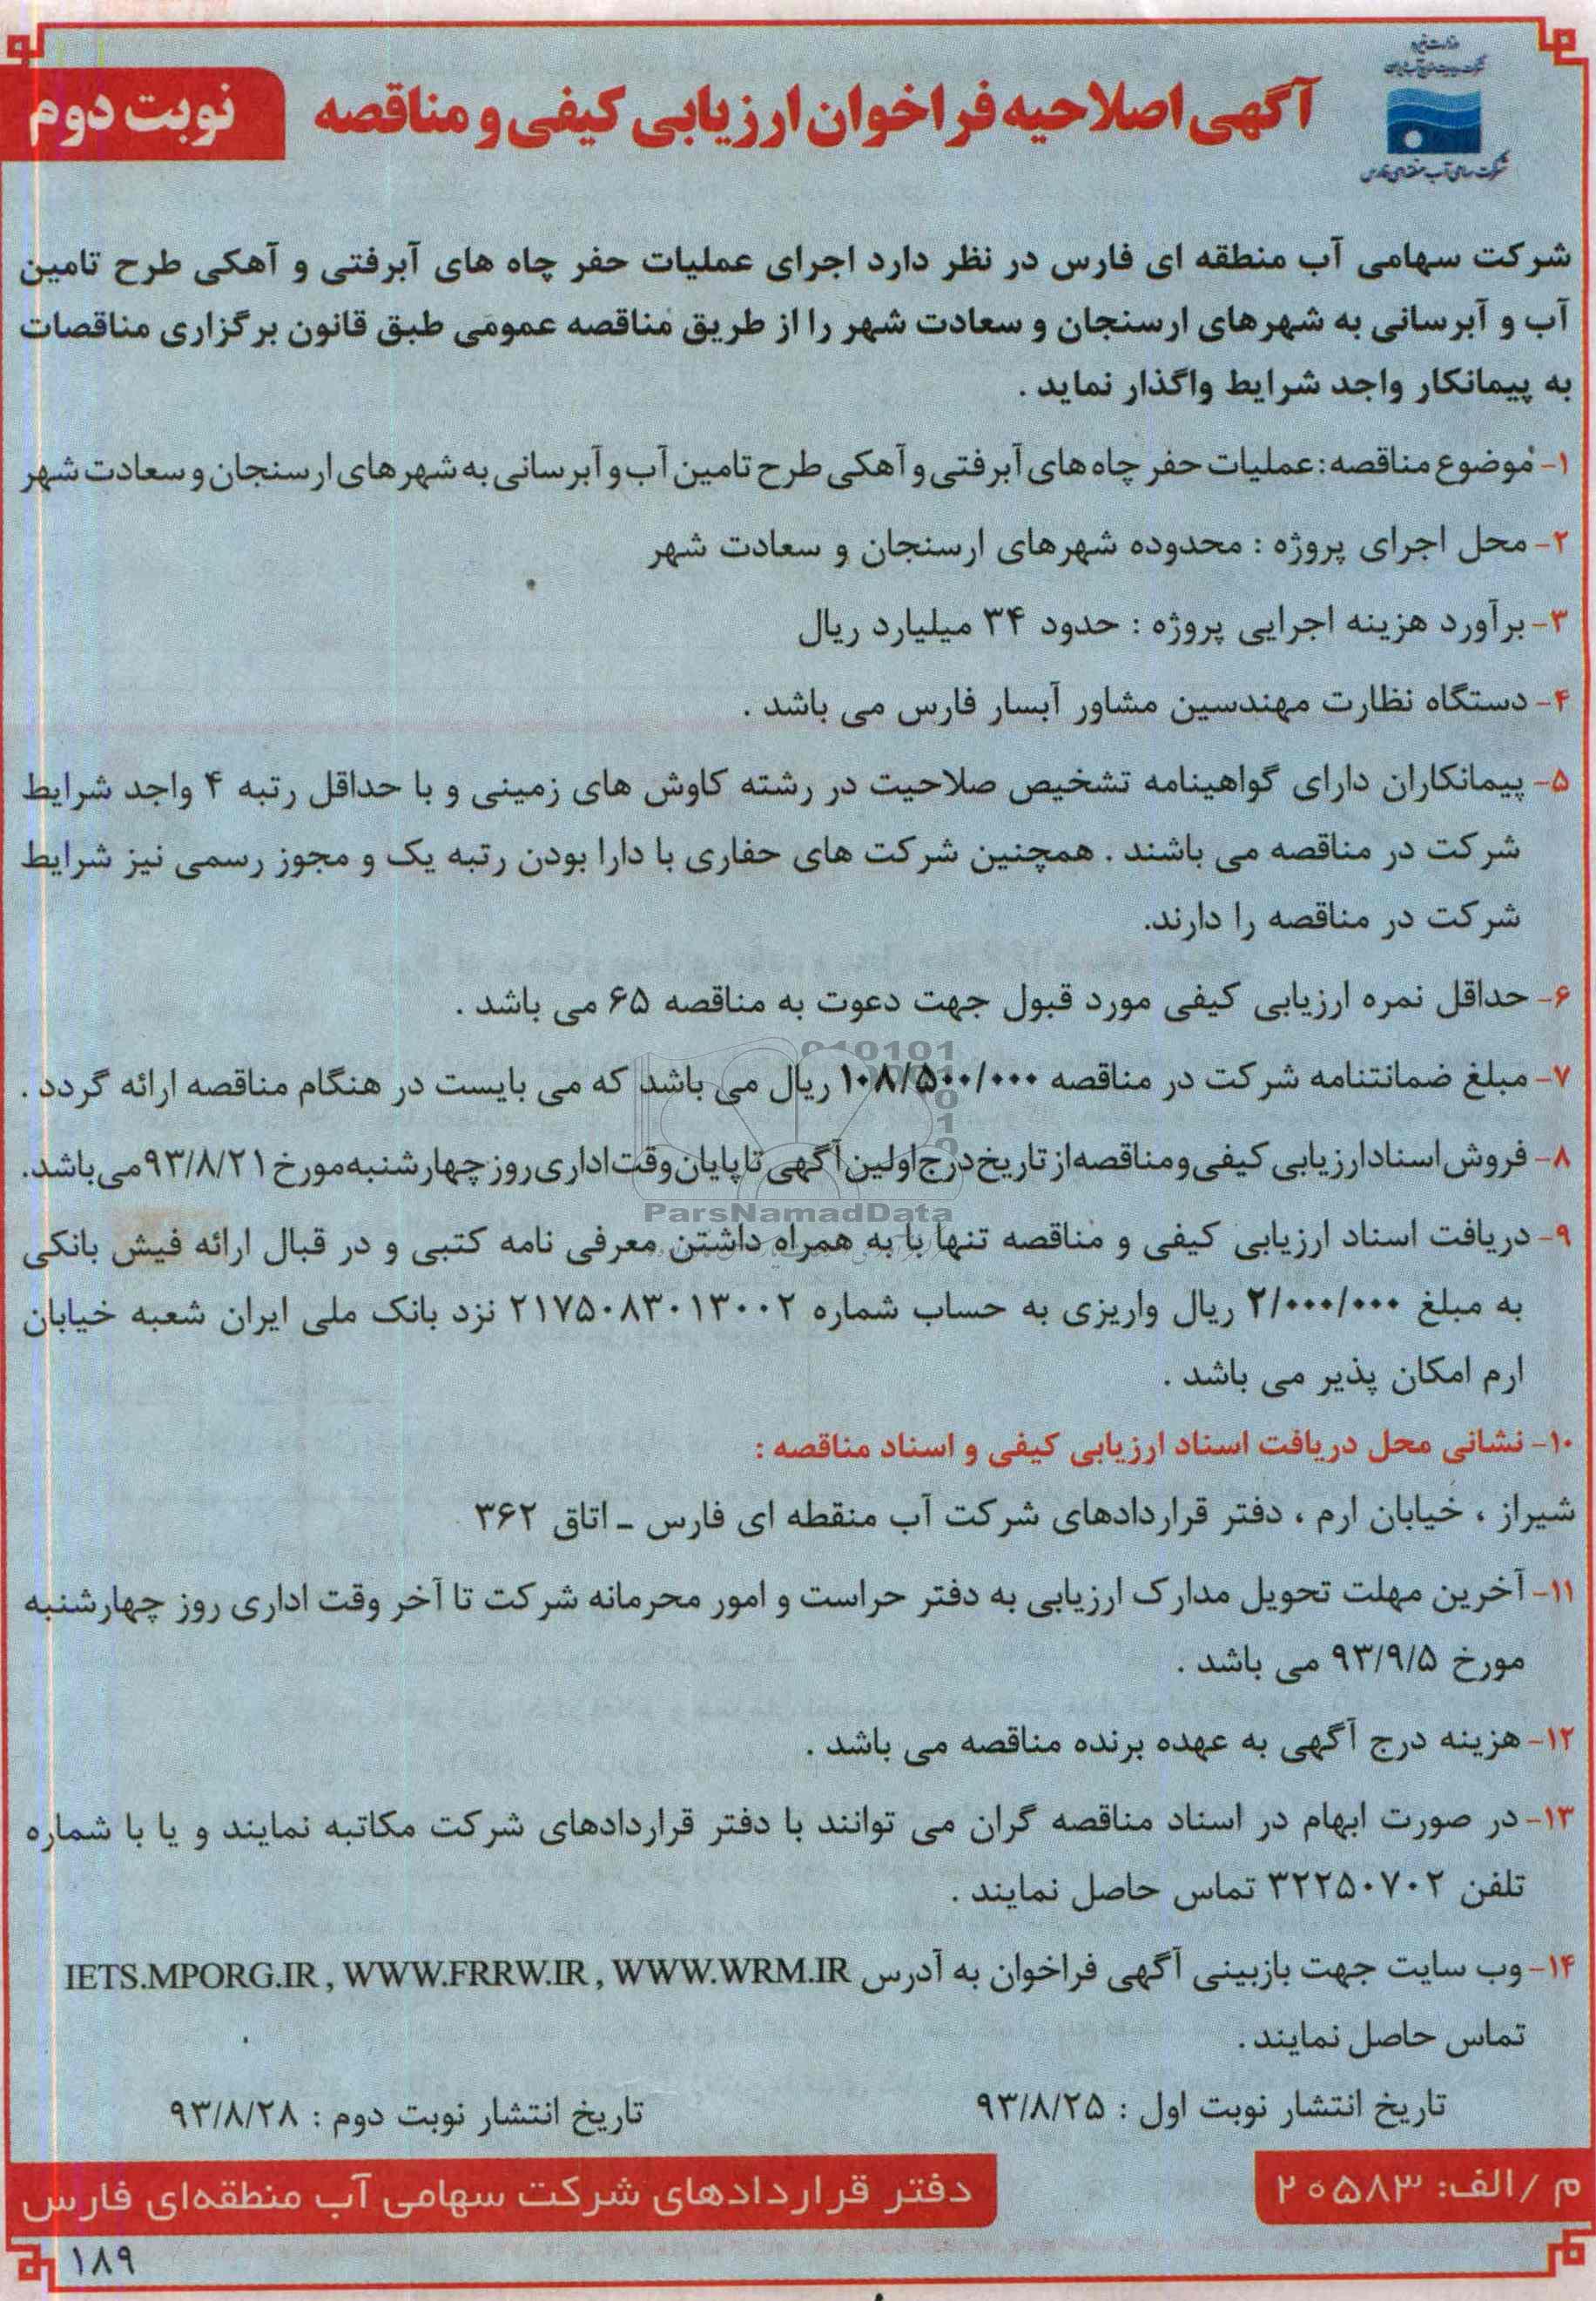 شرکت سهامی آب منطقه ای فارس
آگهی اصلاحیه فراخوان ارزیابی کیفی و مناقصه
نوبت دوم
شرکت سهامی آب منطقه ای فارس در نظر دارد اجرای عملیات حفر چاه های آبرفتی و آهکی طرح تامین
آب و آبرسانی به شهرهای ارسنجان و سعادت شهر را از طریق مناقصه عمومی طبق قانون برگزاری مناقصات
به پیمانکار واجد شرایط واگذار نماید .
۱- موضوع مناقصه: عملیات حفر چاه های آبرفتی و آهکی طرح تامین آب و آبرسانی به شهرهای ارسنجان و سعادت شهر
۲- محل اجرای پروژه : محدوده شهرهای ارسنجان و سعادت شهر
۳- برآورد هزینه اجرایی پروژه : حدود ۳۴ میلیارد ریال
۴- دستگاه نظارت مهندسین مشاور آبسار فارس می باشد .
۵- پیمانکاران دارای گواهینامه تشخیص صلاحیت در رشته کاوش های زمینی و با حداقل رتبه ۴ واجد شرایط
شرکت در مناقصه می باشند . همچنین شرکت های حفاری با دارا بودن رتبه یک و مجوز رسمی نیز شرایط
شرکت در مناقصه را دارند.
۶- حداقل نمره ارزیابی کیفی مورد قبول جهت دعوت به مناقصه ۶۵ می باشد .
۷- مبلغ ضمانتنامه شرکت در مناقصه ۱۰۸/۵۰۰/۰۰۰ ریال می باشد که می بایست در هنگام مناقصه ارائه گردد .
۸- فروش اسناد ارزیابی کیفی و مناقصه از تاریخ درج اولین آگهی تا پایان وقت اداری روز چهارشنبه مورخ ۹۳/۸/۲۱ می باشد.
ParsNamadData
۹- دریافت اسناد ارزیابی کیفی و مناقصه تنها با به همراه داشتن معرفی نامه کتبی و در قبال ارائه فیش بانکی
به مبلغ ۲/۰۰۰/۰۰۰ ریال واریزی به حساب شماره ۲۱۷۵۰۸۳۰۱۳۰۰۲ نزد بانک ملی ایران شعبه خیابان
ارم امکان پذیر می باشد .
۱۰- نشانی محل دریافت اسناد ارزیابی کیفی و اسناد مناقصه :
شیراز ، خیابان ارم ، دفتر قراردادهای شرکت آب منقطه ای فارس - اتاق ۳۶۲
۱۱- آخرین مهلت تحویل مدارک ارزیابی به دفتر حراست و امور محرمانه شرکت تا آخر وقت اداری روز چهارشنبه
مورخ ۹۳/۹/۵ می باشد .
۱۲- هزینه درج آگهی به عهده برنده مناقصه می باشد .
۱۳- در صورت ابهام در اسناد مناقصه گران می توانند با دفتر قراردادهای شرکت مکاتبه نمایند و یا با شماره
تلفن ۳۲۲۵۰۷۰۲ تماس حاصل نمایند .
۱۴- وب سایت جهت بازبینی آگهی فراخوان به آدرس IETS.MPORG.IR , WWW.FRRW.IR , WWW.WRM.IR
تماس حاصل نمایند .
تاریخ انتشار نوبت اول : ۹۳/۸/۲۵
تاریخ انتشار نوبت دوم : ۹۳/۸/۲۸
م / الف: ۲۰۵۸۳
دفتر قراردادهای شرکت سهامی آب منطقه‌ای فارس
۱۸۹